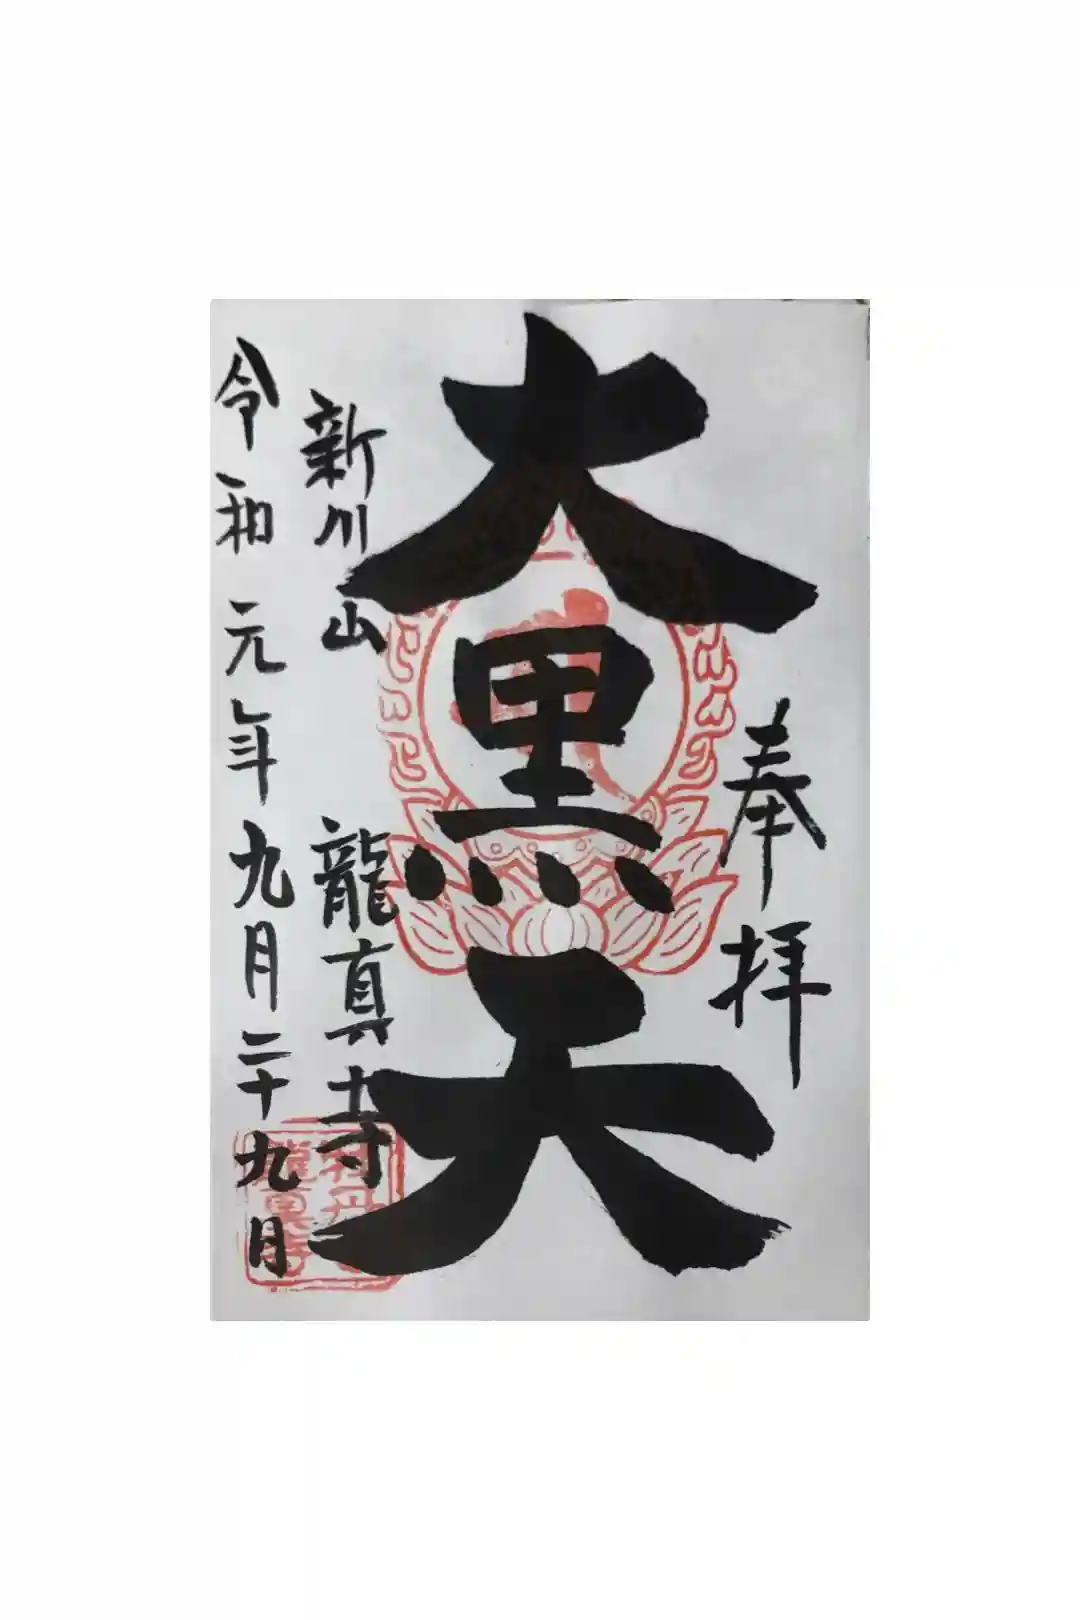 奉拝
大黒天
新川山 龍真寺
令和元年九月二十九月